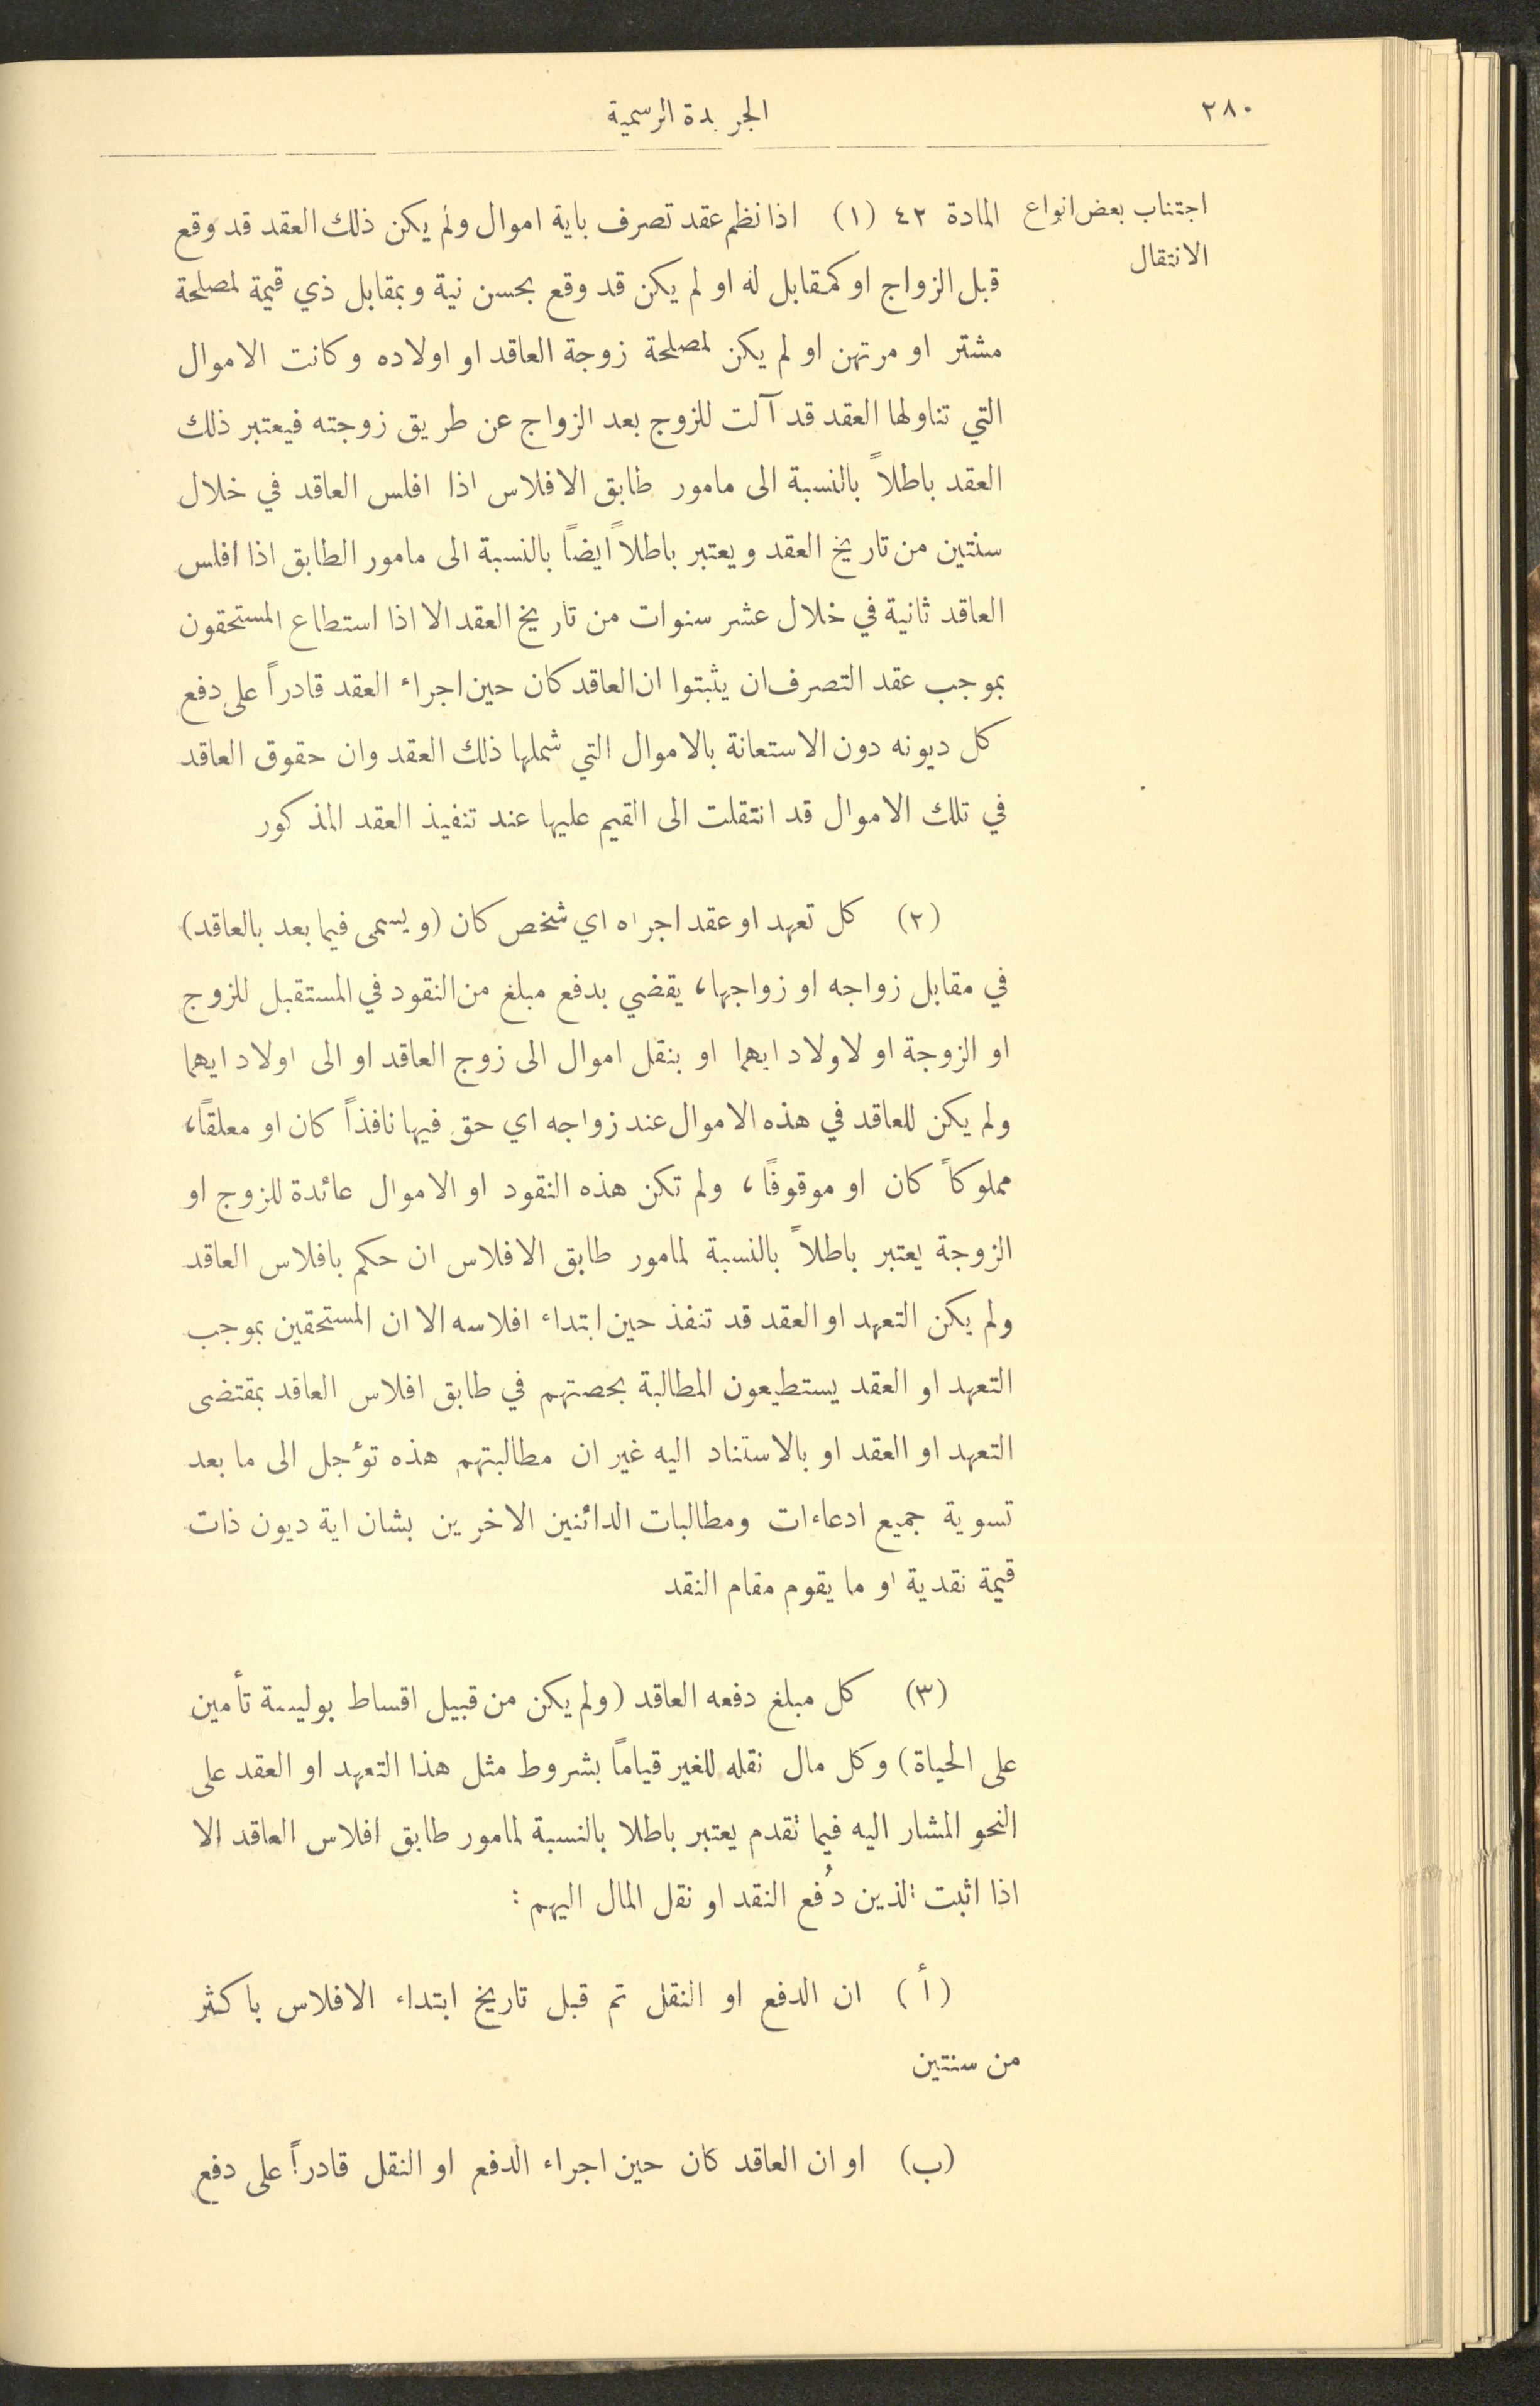 ٢٨٠
الجريدة الرسمية
اجتناب بعض انواع
الانتقال
المادة ٤٢ (١) اذا نظم عقد تصرف باية اموال ولم يكن ذلك العقد قد وقع
قبل الزواج او كمقابل له او لم يكن قد وقع بحسن نية وبمقابل ذي قيمة لمصلحة
مشتر او مرتهن او لم يكن لمصلحة زوجة العاقد او اولاده وكانت الاموال
التي تناولها العقد قد آلت للزوج بعد الزواج عن طريق زوجته فيعتبر ذلك
العقد باطلاً بالنسبة الى مامور طابق الافلاس اذا افلس العاقد في خلال
سنتين من تاريخ العقد ويعتبر باطلاً ايضاً بالنسبة الى مامور الطابق اذا افلس
العاقد ثانية في خلال عشر سنوات من تاريخ العقد الا اذا استطاع المستحقون
بموجب عقد التصرف ان يثبتوا ان العاقد كان حين اجراء العقد قادراً على دفع
كل ديونه دون الاستعانة بالاموال التي شملها ذلك العقد وان حقوق العاقد
في تلك الاموال قد انتقلت الى القيم عليها عند تنفيذ العقد المذكور
(٢) كل تعهد او عقد اجراه اي شخص كان (ويسمى فيما بعد بالعاقد)
في مقابل زواجه او زواجها، يقضي بدفع مبلغ من النقود في المستقبل للزوج
او الزوجة او لاولاد ايهما او بنقل اموال الى زوج العاقد او الى اولاد ايهما
ولم يكن للعاقد في هذه الاموال عند زواجه اي حق فيها نافذاً كان او معلقاً،
مملوكاً كان او موقوفاً، ولم تكن هذه النقود او الاموال عائدة للزوج او
الزوجة يعتبر باطلاً بالنسبة لمامور طابق الافلاس ان حكم بافلاس العاقد
ولم يكن التعهد او العقد قد تنفذ حين ابتداء افلاسه الا ان المستحقين بموجب
التعهد او العقد يستطيعون المطالبة بحصتهم في طابق افلاس العاقد بمقتضى
التعهد او العقد او بالاستناد اليه غير ان مطالبتهم هذه تؤجل الى ما بعد
تسوية جميع ادعاءات ومطالبات الدائنين الاخرين بشان اية ديون ذات
قيمة نقدية او ما يقوم مقام النقد
(٣) كل مبلغ دفعه العاقد (ولم يكن من قبيل اقساط بوليسة تأمين
على الحياة) وكل مال نقله للغير قياماً بشروط مثل هذا التعهد او العقد على
النحو المشار اليه فيما تقدم يعتبر باطلا بالنسبة لمامور طابق افلاس العاقد الا
اذا اثبت الذين دُفع النقد او نقل المال اليهم :
(أ) ان الدفع او النقل تم قبل تاريخ ابتداء الافلاس باكثر
من سنتين
(ب) او ان العاقد كان حين اجراء الدفع او النقل قادراً على دفع